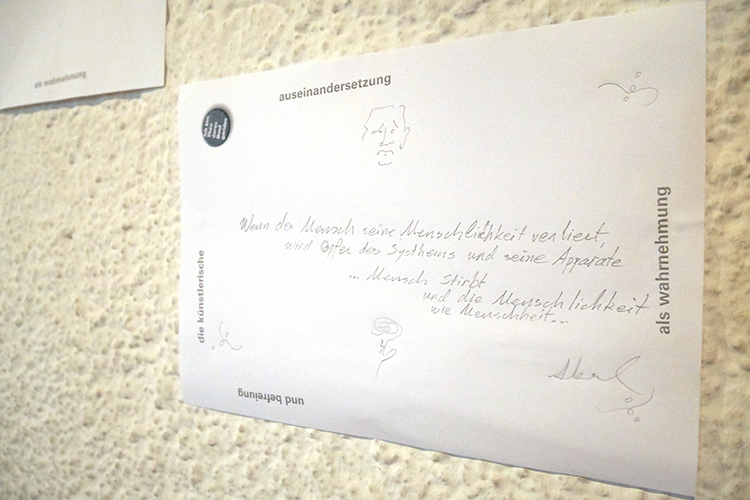 als wahrnehmung
auseinandersetzung
Wenn der Mensch seine Menschlichkeit verliert,
wird Opfer des Systhems und seine Apparate
... Mensch Stirbt
und die Menschlichkeit
wie Menschheit...
die künstlerische
als wahrnehmung
und befreiung